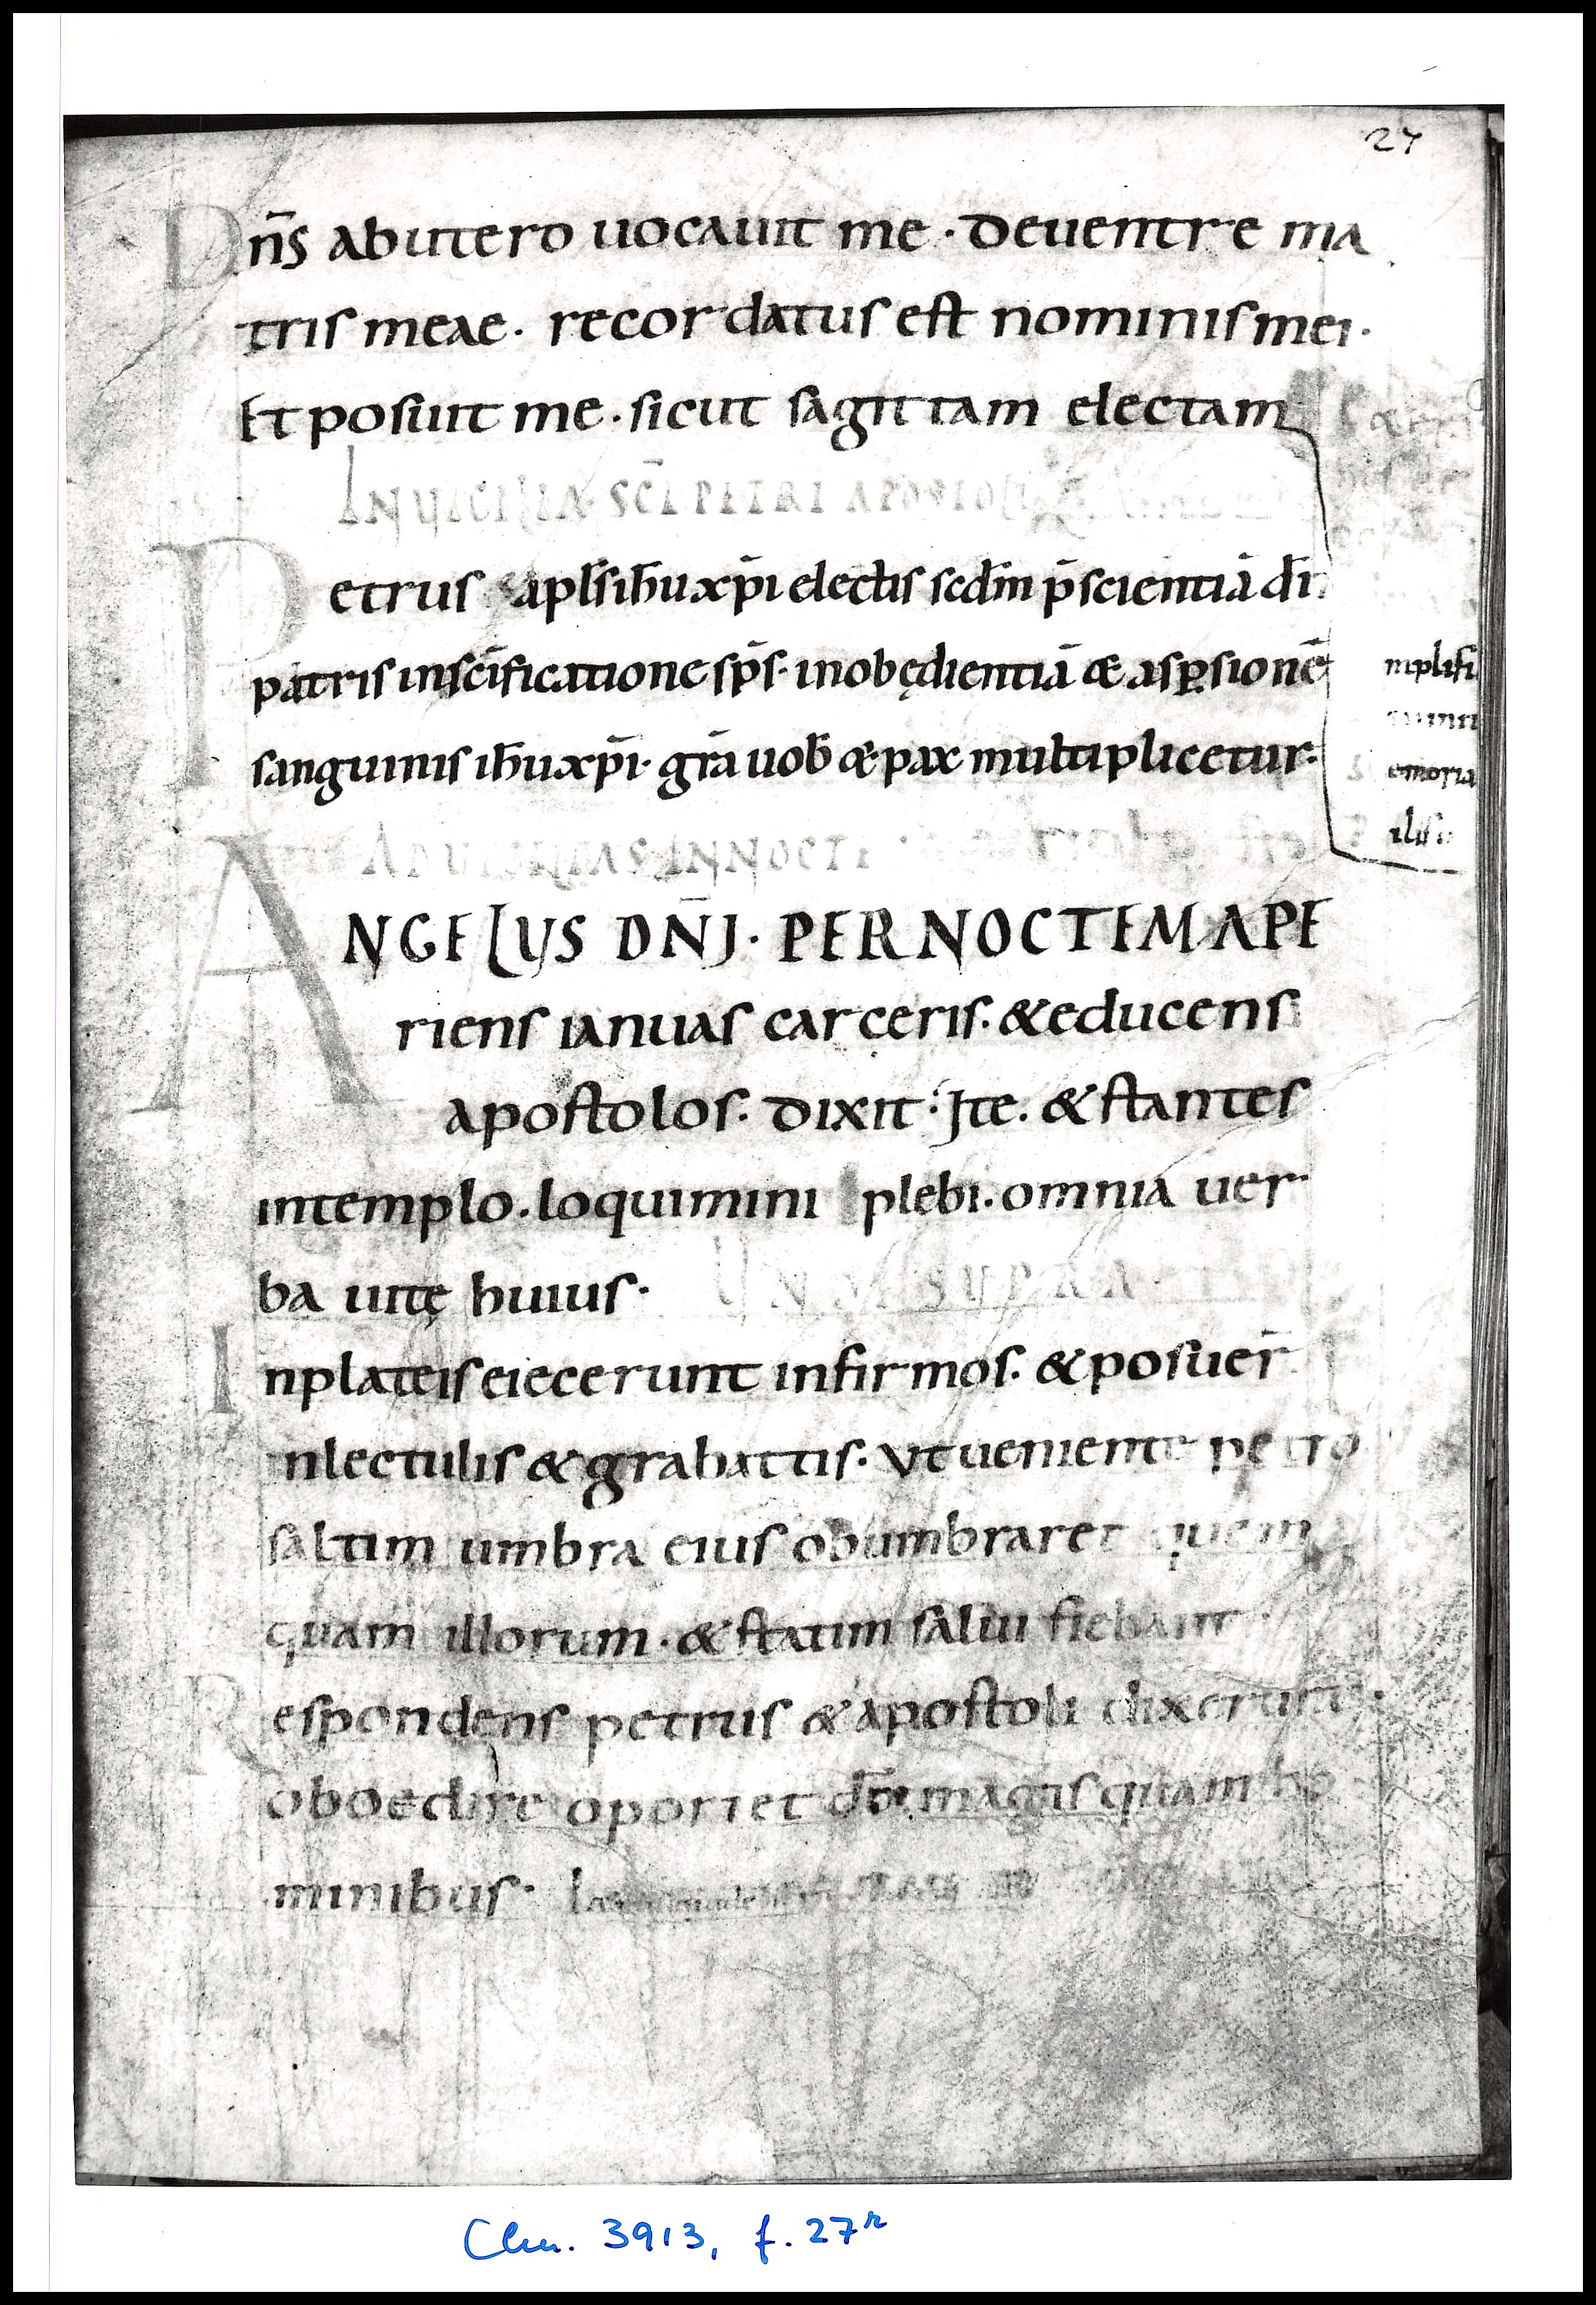 27
Dn̄s ab utero uocauit me · de uentre ma
tris meae · recordatus est nominis mei ·
Et posuit me · sicut sagittam electam
IN UIGILIA SC̄I PETRI APOSTOLI
Petrus apl̄s ih̄u xp̄i electis scd̄m p̄scientiā dī
patris in sc̄ificatione sp̄s · in obędientiā & aspersionē
sanguinis ih̄u xp̄i · grā uob̄ & pax multiplicetur ·
mplifi
emoria
AD UIGILIAS IN NOCTE
ANGELUS DN̄I · PER NOCTEM APE
riens ianuas carceris · & educens
apostolos · dixit · Ite · & stantes
in templo · loquimini plebi · omnia uer
ba uitę huius · UN M SUPRA
In plateis eiecerunt infirmos · & posuer̄
in lectulis & grabattis · Ut ueniente petro
saltim umbra eius obumbraret quem
quam illorum · & statim salui fiebant
Respondens petrus & apostoli dixerunt ·
oboedire oportet dō magis quam ho
minibus ·
Clm. 3913, f. 27r